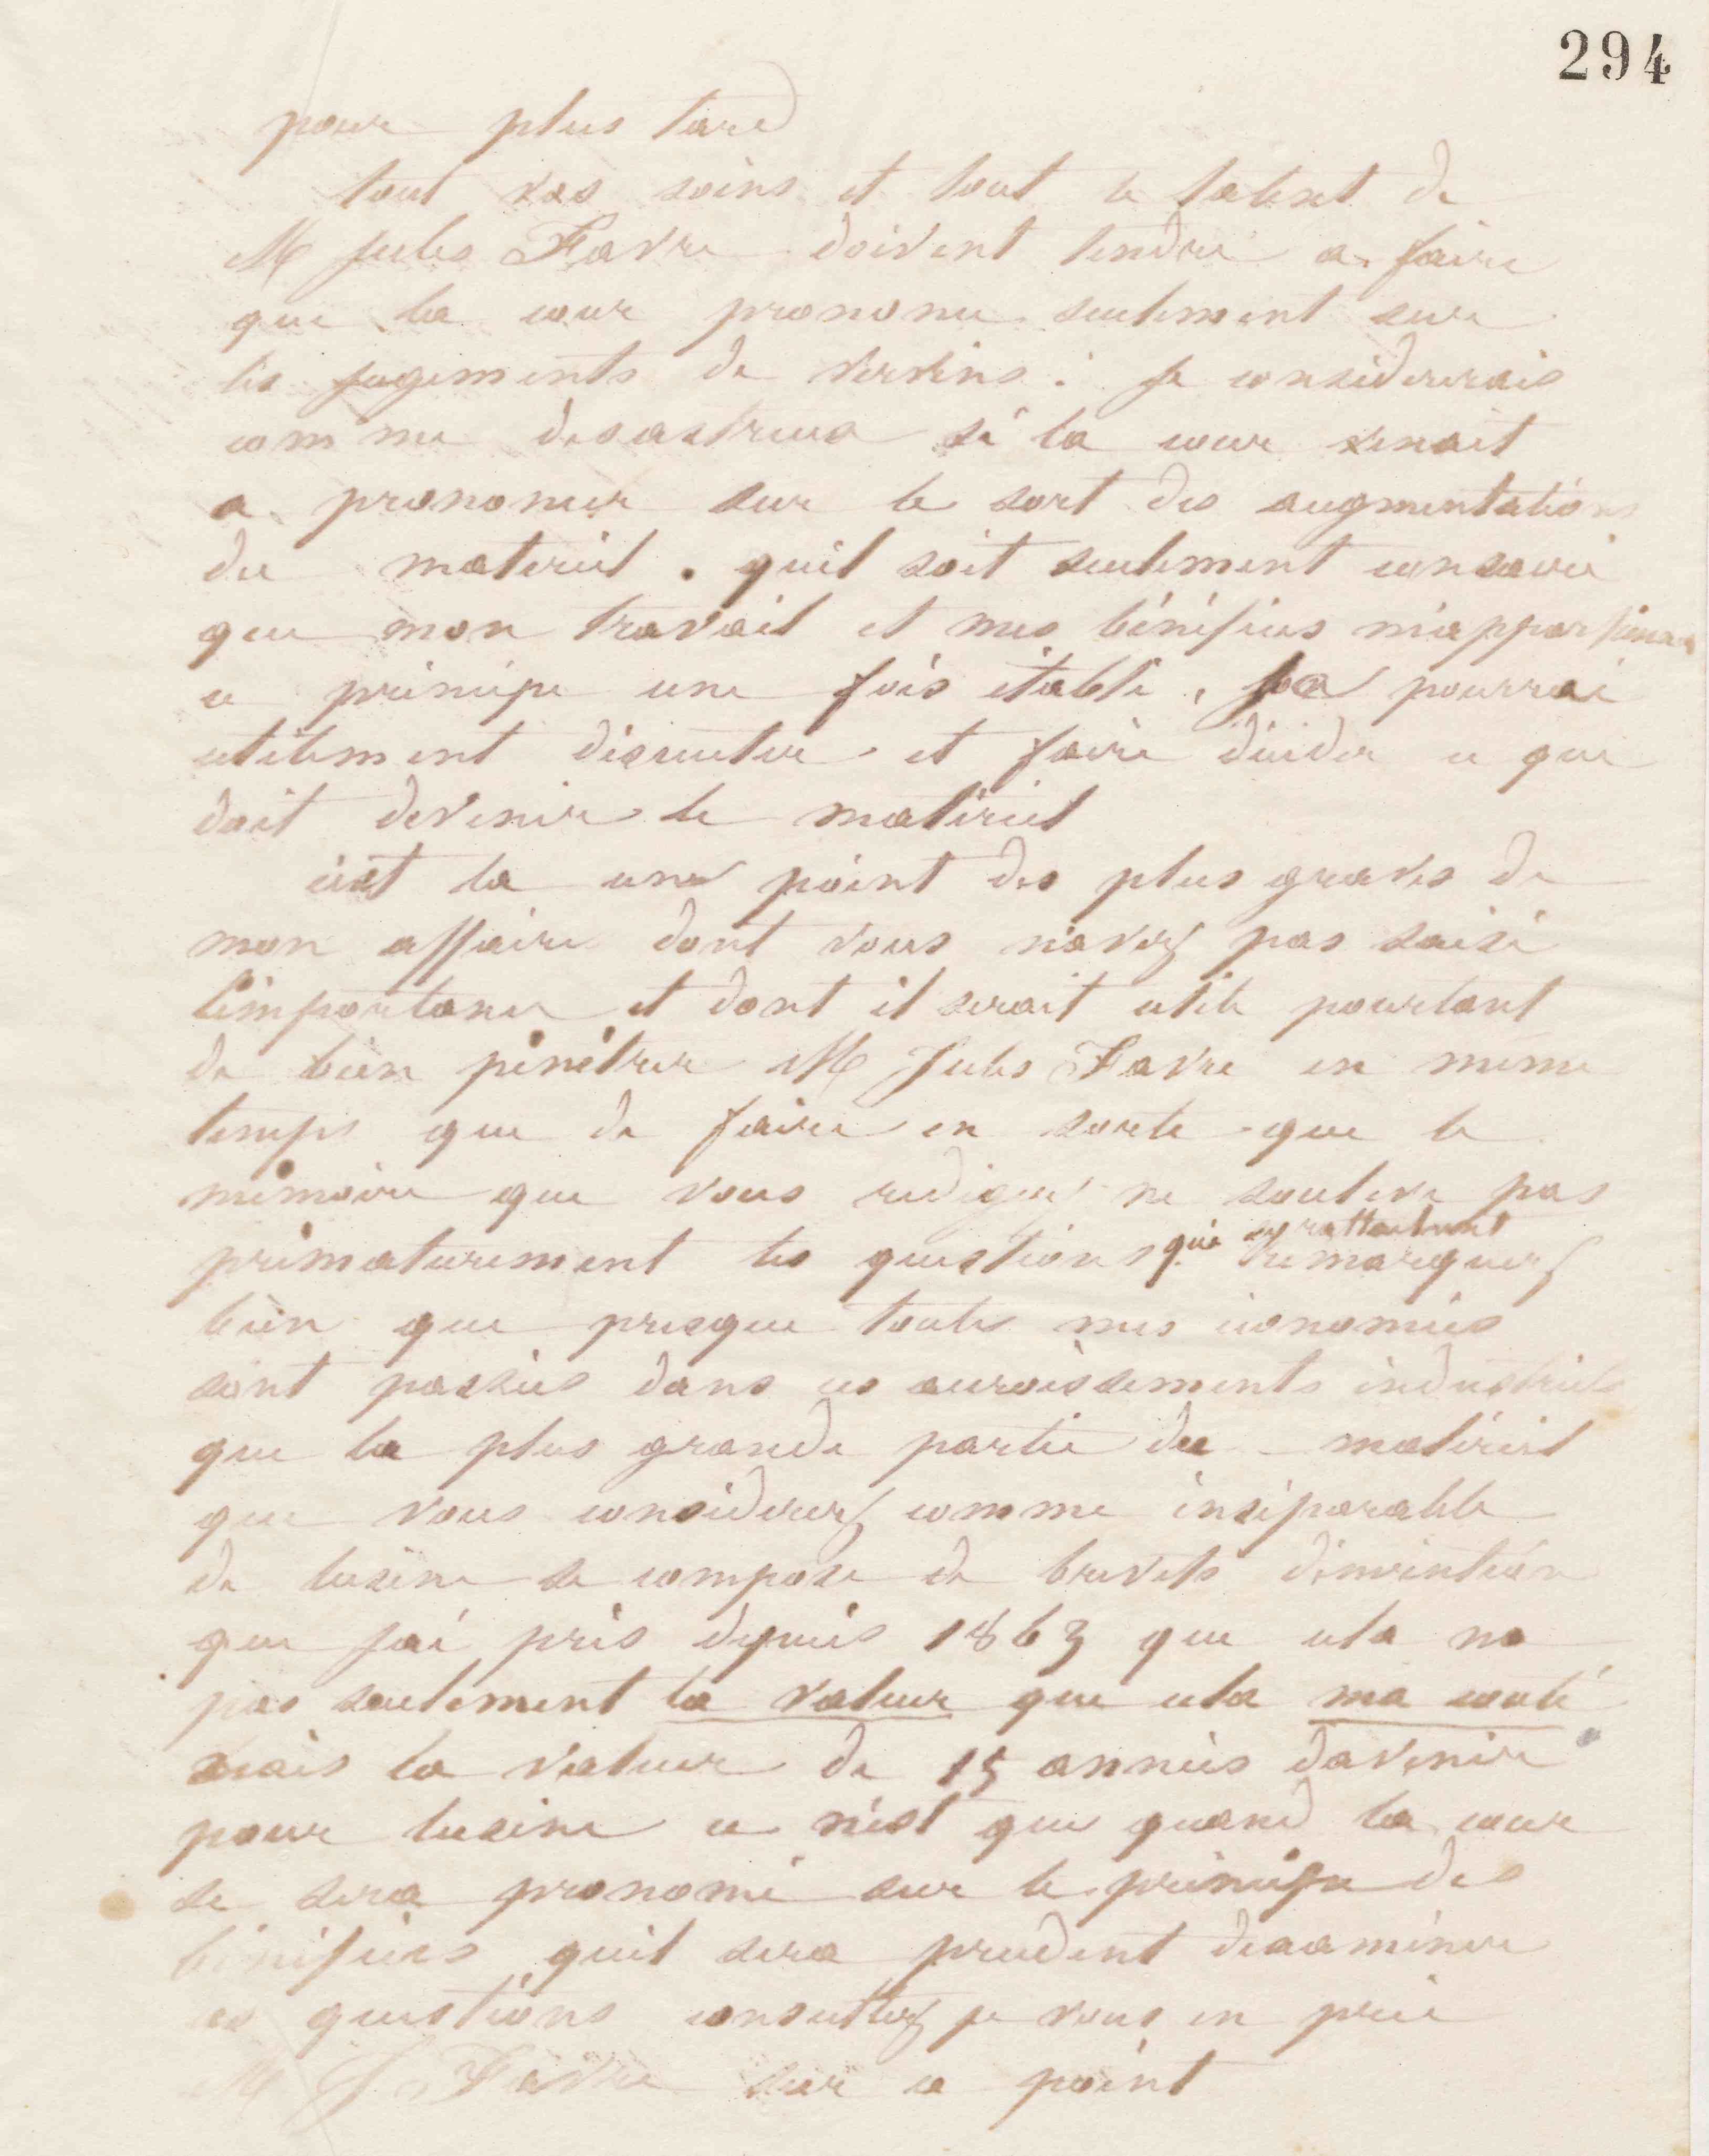 294
pour plus tard
tout vos soins et tout le talent de
M Jules Favre doivent tendre a faire
que la cour prononce seulement sur
les jugements de Vervins. Je considererais
comme desastreux si la cour venait
a prononcer sur le sort des augmentations
du materiel. quil soit seulement consacré
que mon travail et mes bénéfices m'appartiennent
ce principe une fois établi, pourrai
utilement discuter et faire décider ce que
doit devenir le matériel
cest la un point des plus graves de
mon affaire dont vous n'avez pas saisi
limportance et dont il serait utile pourtant
de bien pénétrer M Jules Favre en meme
temps que de faire en sorte que le
mémoire que vous redigez ne souleve pas
prématurement les questions qui sy rattachent remarquez
bien que presque toutes mes économies
sont passées dans ces accroissements industriels
que la plus grande partie du matériel
que vous considerez comme inséparable
de lusine se compose de brevets dinvention
que jai pris depuis 1863 que cela na
pas seulement la valeur que cela ma couté
mais la valeur de 15 années davenir
pour lusine ce n'est que quand la cour
se sera prononcé sur le principe des
bénéfices quil sera prudent dexaminer
ces questions consultez je vous en prie
M J Favre sur ce point